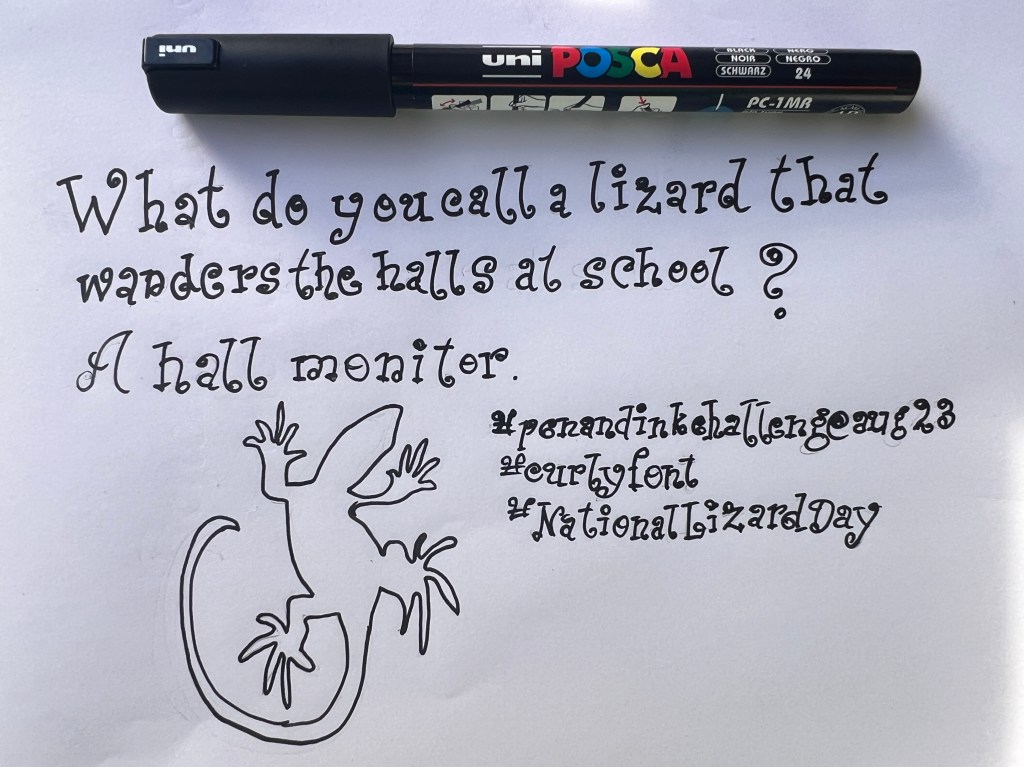 uni
uni POSCA
BLACK NERO
NOIR NEGRO
SCHWARZ 24
PC-1MR
What do you call a lizard that
wanders the halls at school ?
A hall monitor.
#penandinkchallengeaug23
#curlyfont
#NationalLizardDay